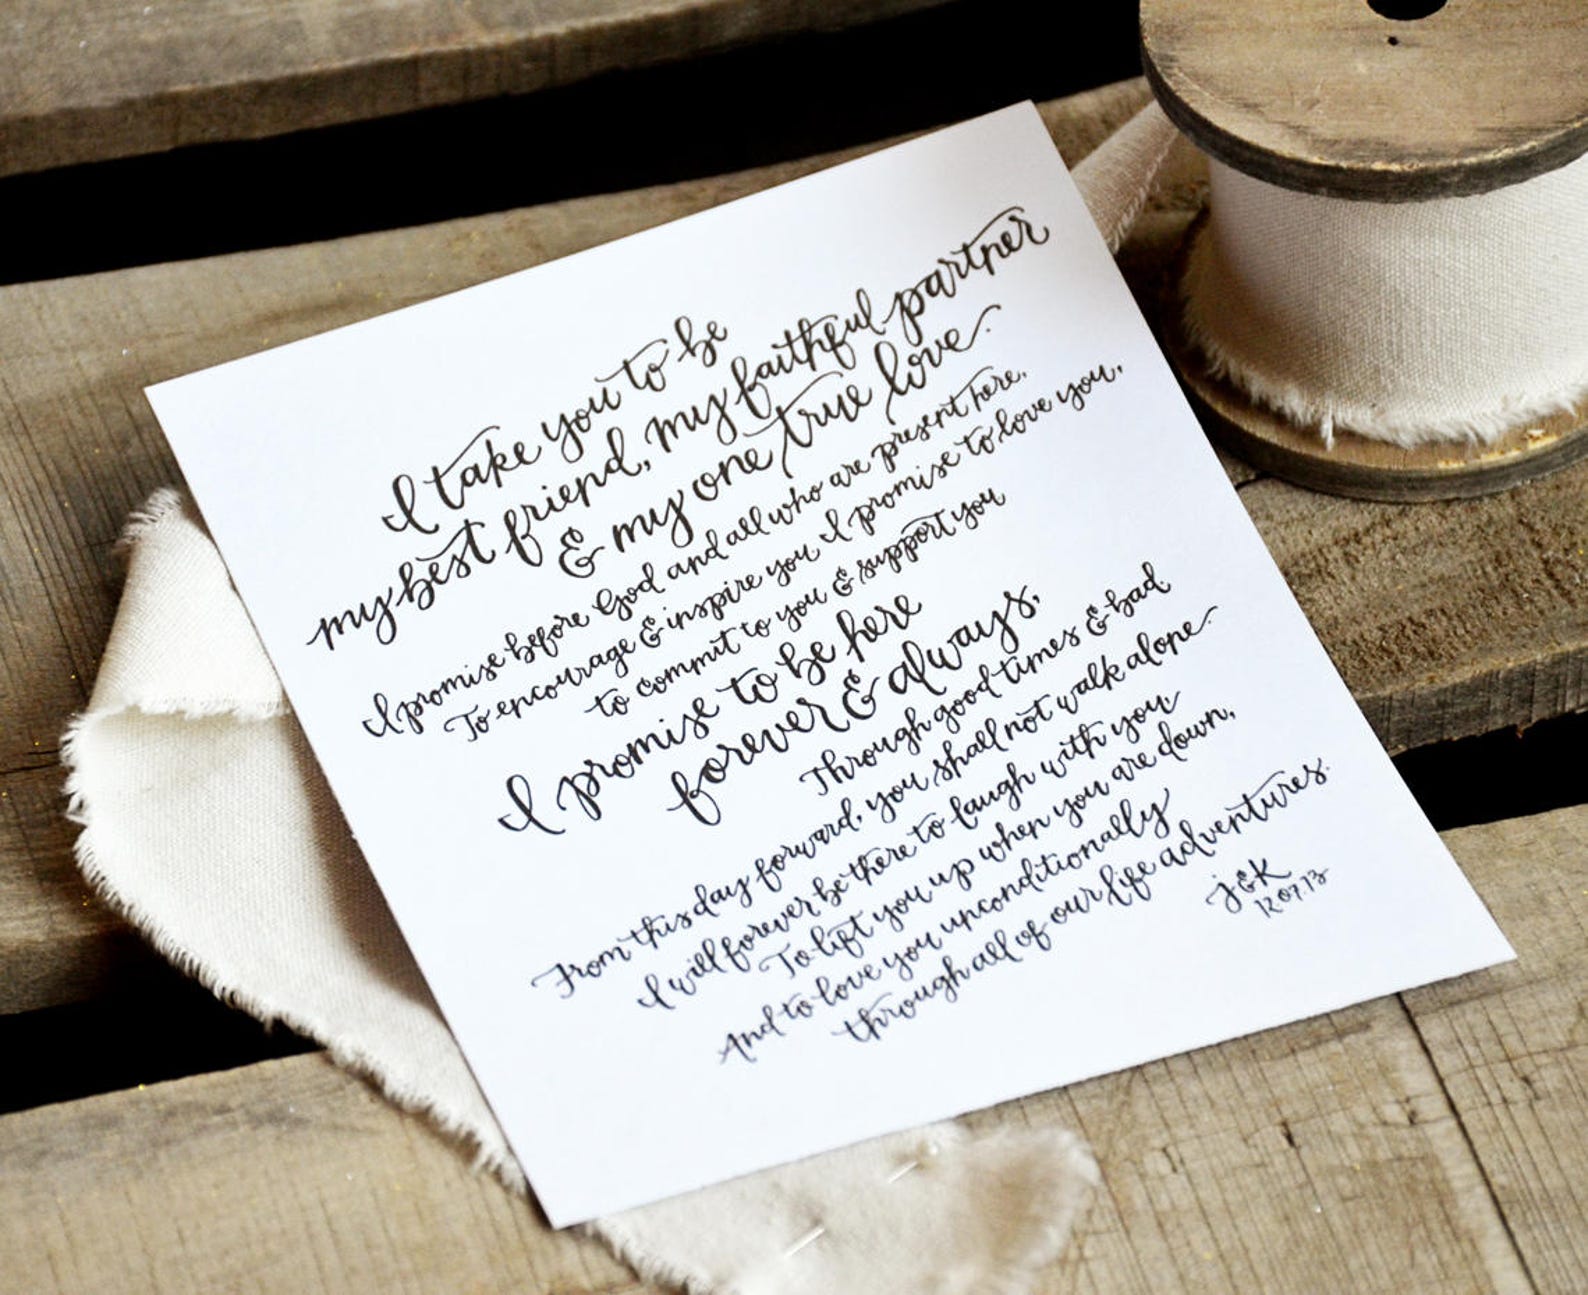 I take you to be
my best friend, my faithful partner
& my one true love.
I promise before God and all who are present here,
To encourage & inspire you, I promise to love you,
to commit to you & support you
I promise to be here
forever & always,
Through good times & bad.
From this day forward, you shall not walk alone.
I will forever be there to laugh with you
To lift you up when you are down,
And to love you unconditionally
through all of our life adventures.
J & K
12.07.13